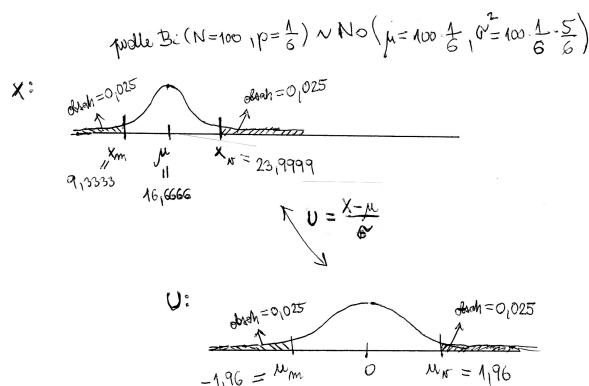 podle Bi(N=100, p=1/6) ~ No(μ=100·1/6, σ²=100·1/6·5/6)
X:
obsah=0,025
obsah=0,025
x_m
μ
x_v = 23,9999
=
9,3333
=
16,6666
U = X-μ/σ
U:
obsah=0,025
obsah=0,025
-1,96 = u_m
0
u_v = 1,96